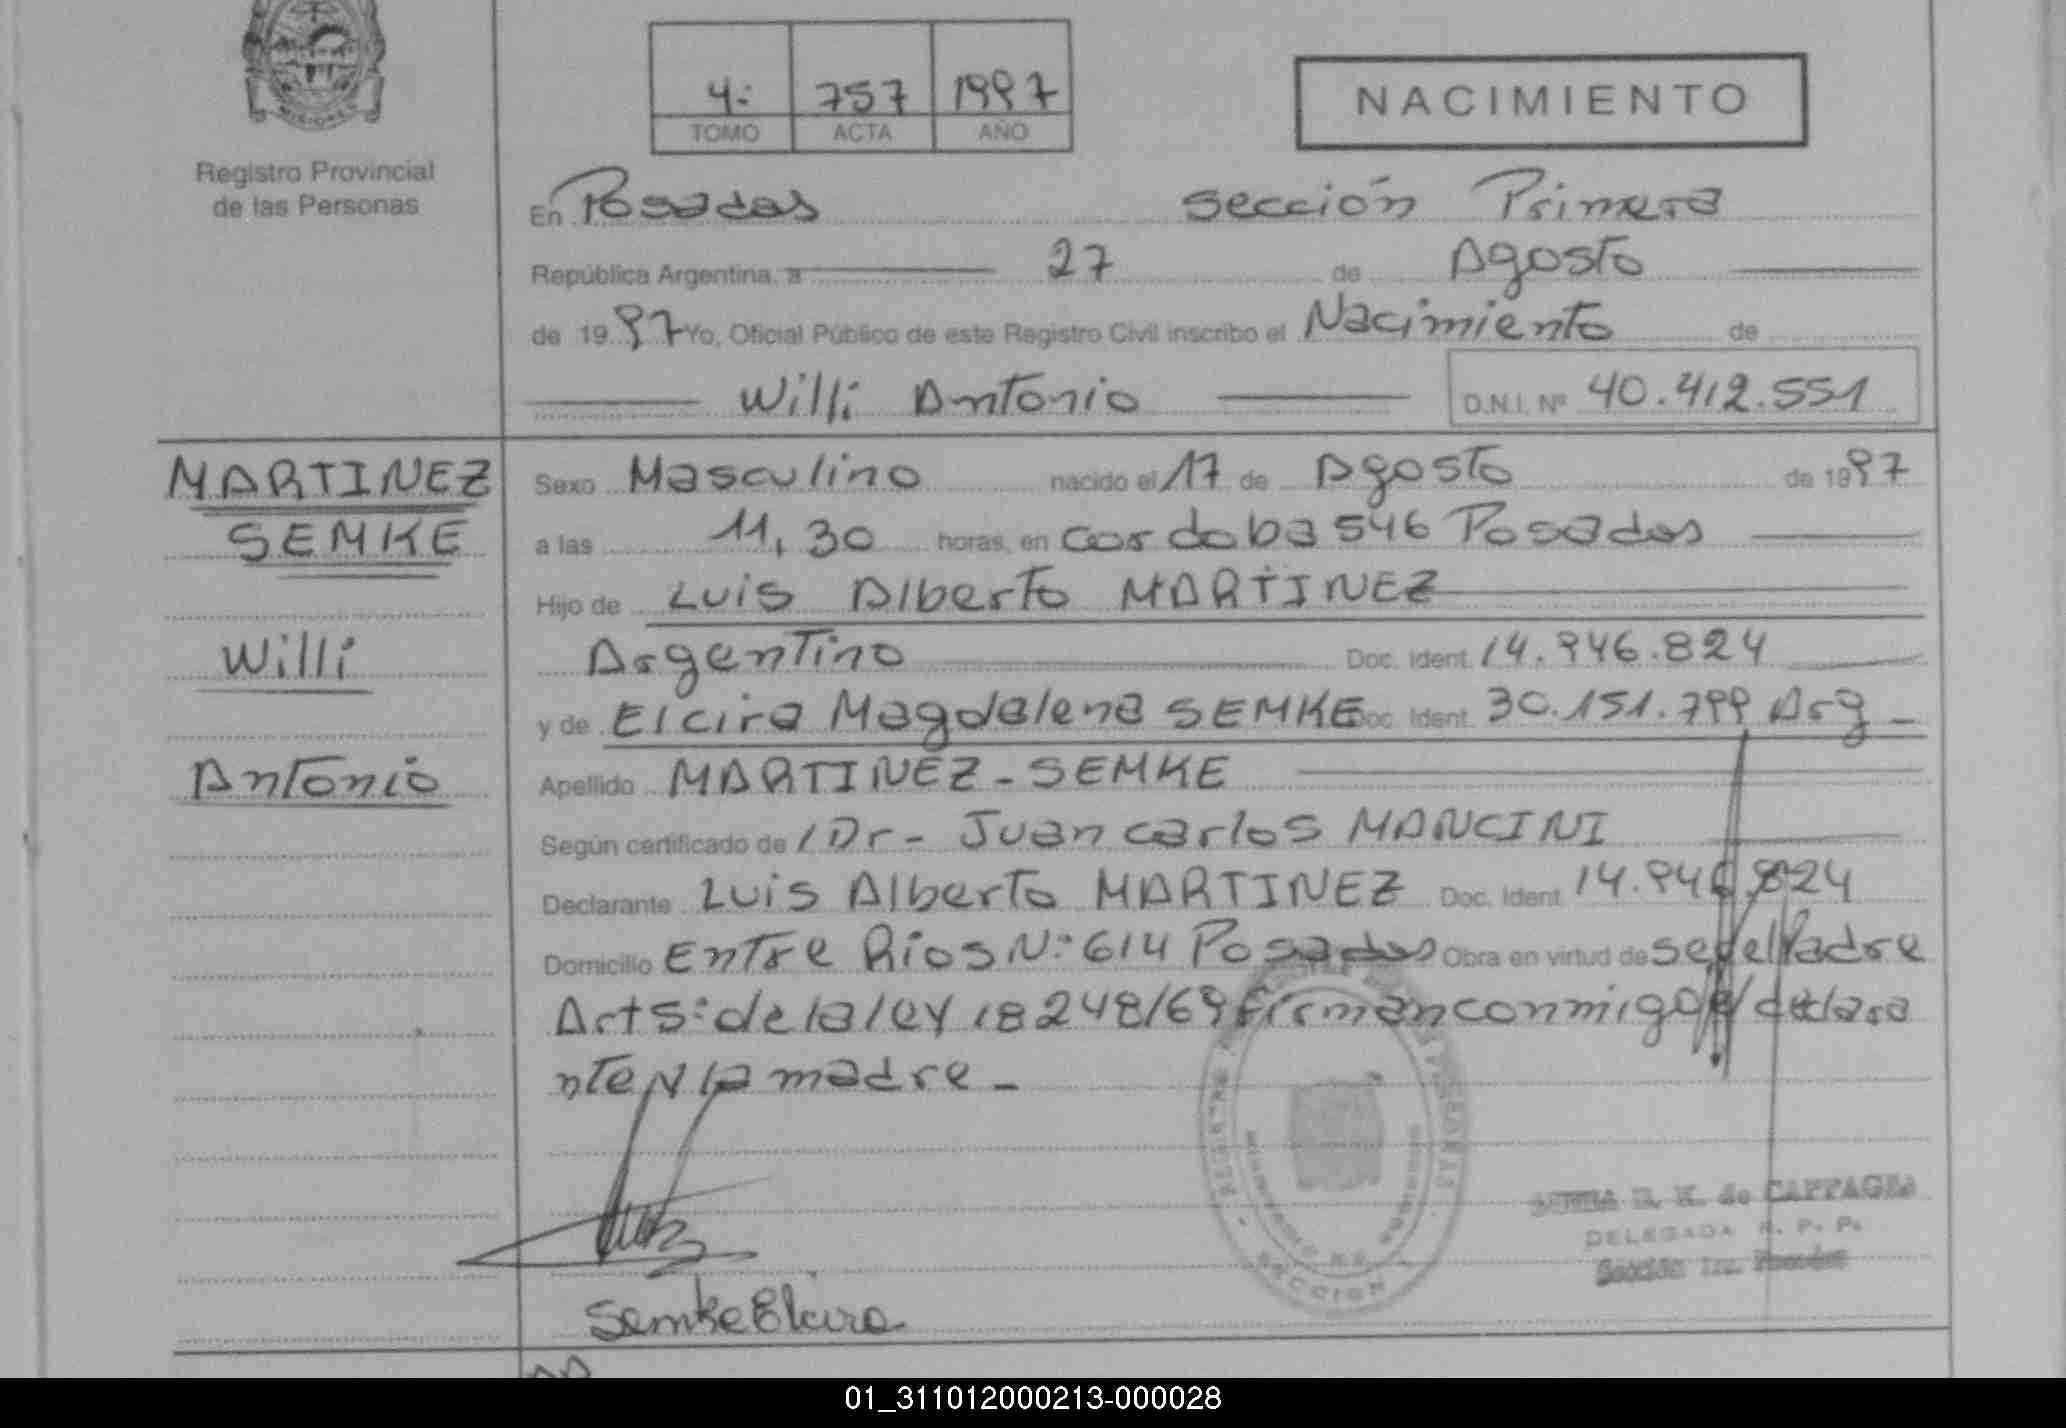 MISIONES
Registro Provincial
de las Personas
4: 757 1997
TOMO ACTA AÑO
NACIMIENTO
En Posadas sección Primera
República Argentina, a 27 de Agosto
de 1997 Yo, Oficial Público de este Registro Civil inscribo el Nacimiento de
Willi Antonio D.N.I. Nº 40.412.551
MARTINEZ
SEMKE
Willi
Antonio
Sexo Masculino nacido el 17 de Agosto de 1997
a las 11,30 horas, en Cordoba 546 Posadas
Hijo de Luis Alberto MARTINEZ
Argentino Doc. Ident. 14.946.824
y de Elcira Magdalena SEMKE Doc. Ident. 30.151.799 Arg
Apellido MARTINEZ - SEMKE
Según certificado de Dr - Juan Carlos MANCINI
Declarante Luis Alberto MARTINEZ Doc. Ident. 14.946.824
Domicilio Entre Rios N: 614 Posadas Obra en virtud de ser el Padre
Art 5: de la ley 18248/69 firman conmigo el declara
nte y la madre -
DELEGADA R. P. P.
Sección 1ra. Posadas
SECCION
Semke Elcira
01_311012000213-000028